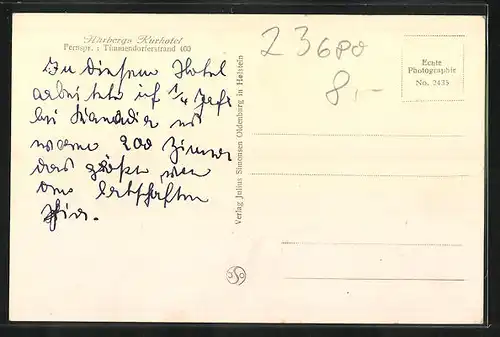 Hürbergs Kurhotel
Fernspr.: Timmendorferstrand 403
In diesem Hotel
arbeitete ich 1/4 Jahr
bei es
waren 200 Zimmer
das größte von
den
hier.
23680
8,-
Echte
Photographie
No. 2435
Verlag Julius Simonsen Oldenburg in Holstein